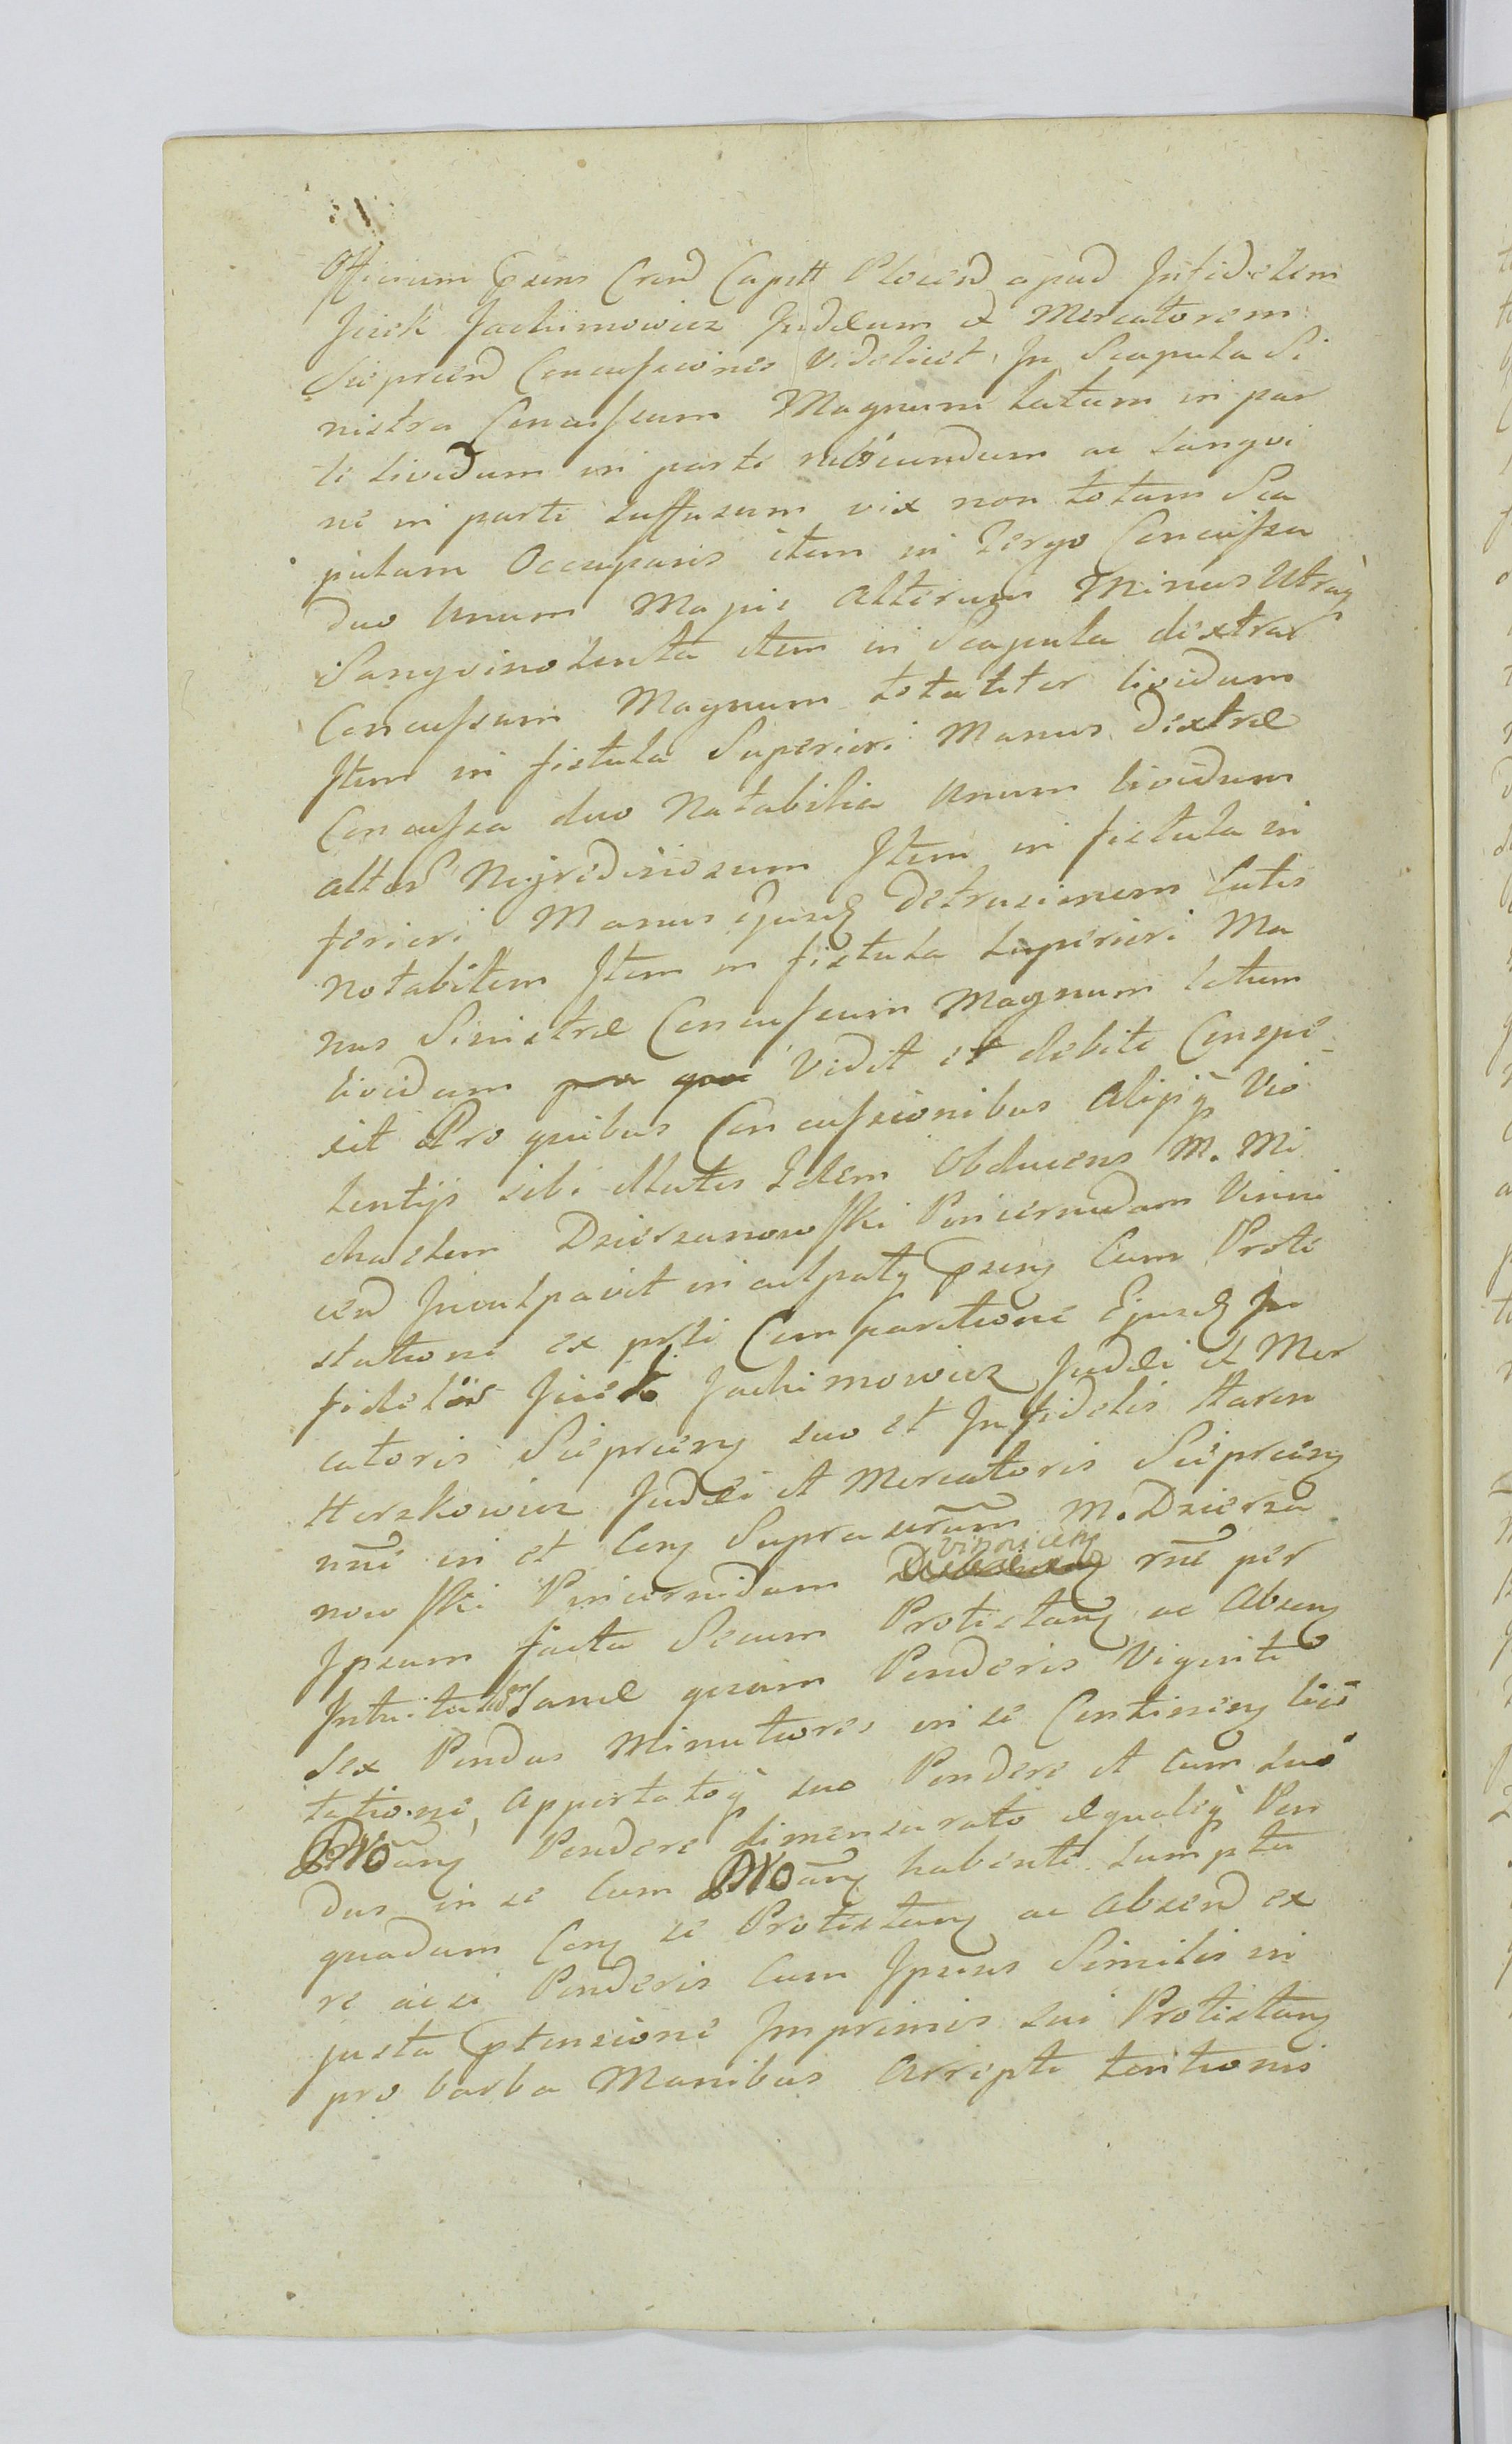 Officium Pñns Crend Captt Plocend apud Infidelem
Jcek Jachimowicz Judæum et Mercatorem
Sieprcend Concussiones videlicet, In Scapula Si
nistra Concussum Magnum Latum in par
te lividum in parte rubicundum ac Sangvi
ne in parte suffusum vix non totam Sca
pulam Occupans item in Tergo Concussa
duo Unum Majus Alterum Minus Utraq̃
Sangvinolenta item in Scapula dextra
Concussum Magnum totaliter lividum
Item in fistula Superiori Manus dextræ
Concussa duo Notabilia Unum lividum
alterũ Nigredinosum Item in fistula in
feriori Manus Ejusd Detrusionem Cutis
notabilem Item in fistula Superiori Ma
nus Sinistræ Concussum Magnum latum
lividum vidit et debite Conspe
xit Pro quibus Concussionibus Alijsq̃ Vio
lentijs sibi illatis Idem Obducens M. Mi
chaelem Dzierzanowski Pincernidam Vinni
cend Inculpavit inculpatq Pñsenq Cum Prote
statione ex pñti Comparitione Ejusd In
fidelis Jcek Jachimowicz Judæi et Mer
catoris Sieprcenq suo et Infidelis Haren
Herszkowicz Judæi et Mercatoris Sieprcenq
nñe in et Conq Supra scrãm M. Dzierza
nowski Pincernidam Vinnicen rñe per
Ipsum facta Secum Protestanq ac Absenq
Intuitu Lanæ quam Ponderis Viginti
Sex Pondus Minutiores in se Continenq lici
tatione, Apportatoq̃ suo Pondere et Cum suo
Pondere dimensurato Equaleq̃ Pon
dus in se Cum habente sumptu
quodam Conq se Protestanq ac Absend ex
re acsi Ponderis Cum Ipsius Similis in
justa Ptensione Imprimis sui Protestanq
pro barba Manibus Arripte tentionis